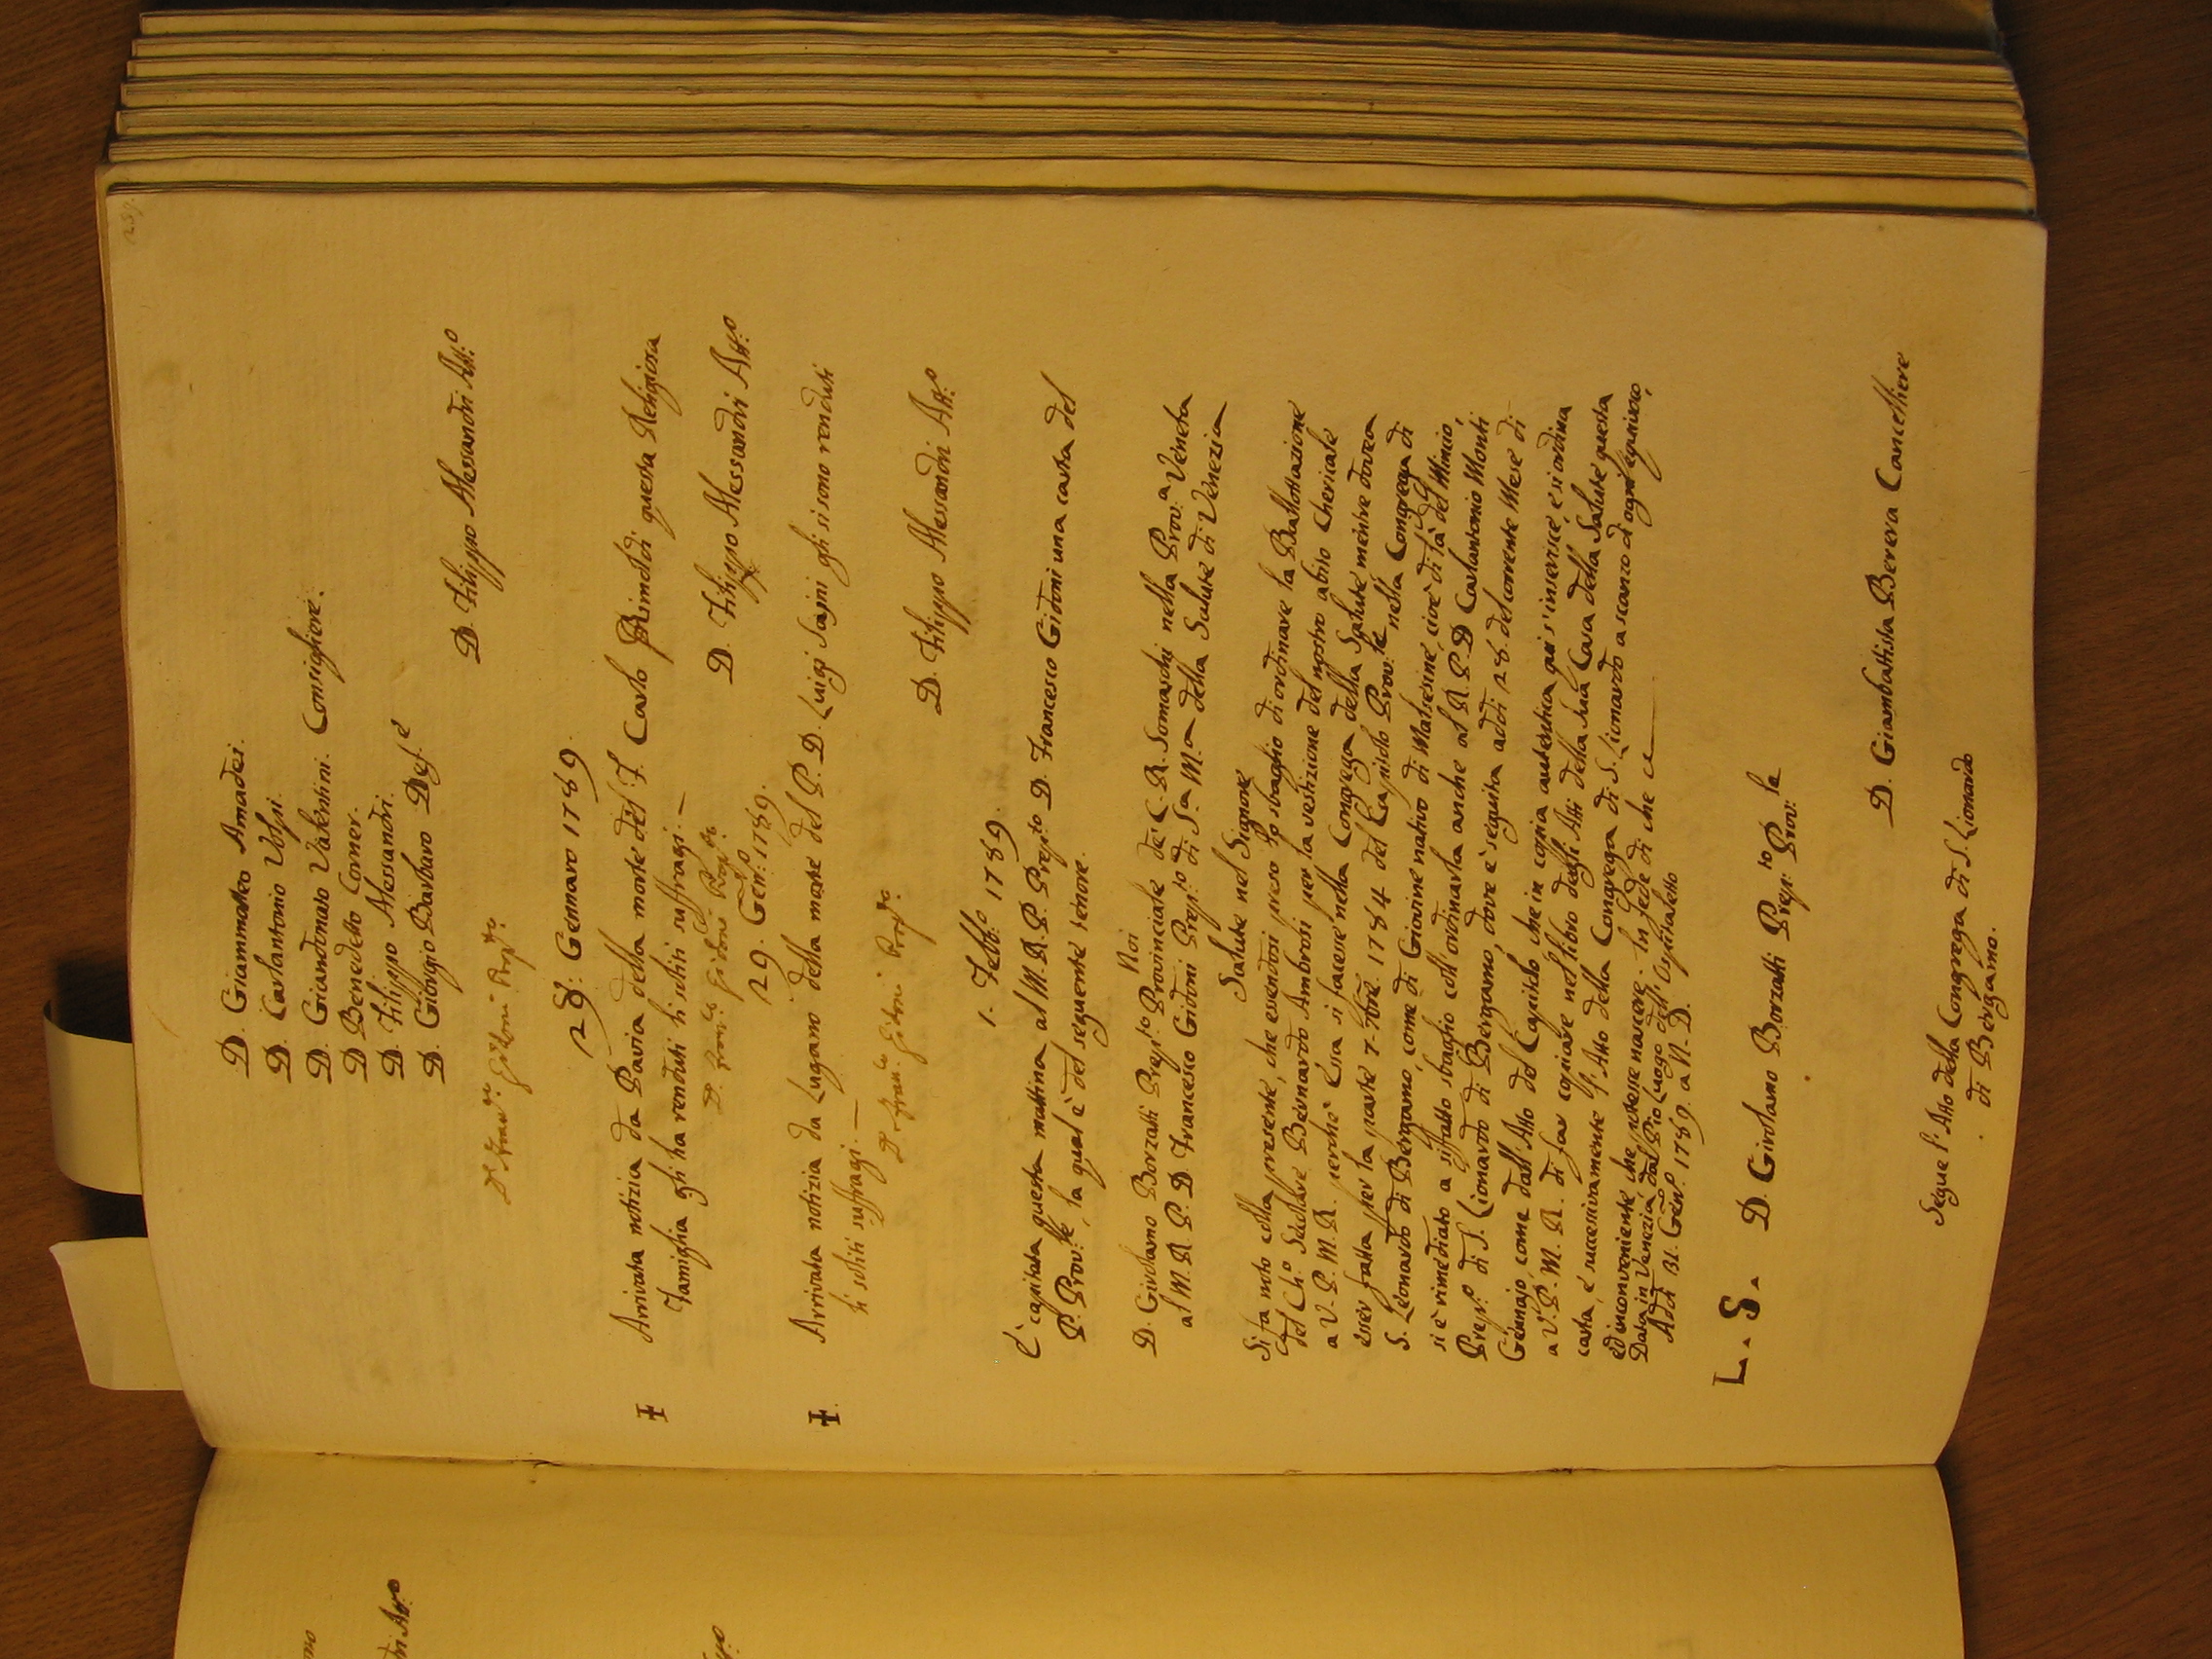 237.
D. Giammatteo Amadei.
D. Carlantonio Volpi.
D. Giandonato Valentini. Consigliere.
D. Benedetto Corner.
D. Filippo Alessandri.
D. Giorgio Barbaro Def.e
D. Filippo Alessandri Att.o
D. Fran.co Gidoni Prep.to
29: Gennaro 1789.
Arrivata notizia da Pavia della morte del F. Carlo Rimoldi questa Religiosa
Famiglia gli ha renduti li soliti suffragi. —
D. Filippo Alessandri Att.o
D. Fran.co Gidoni Prep.to
29. Gen.o 1789.
Arrivata notizia da Lugano della morte del P. D. Luigi gli si sono renduti
li soliti suffragi. —
D. Filippo Alessandri Att.o
D. Fran.co Gidoni Prep.to
1. Febb.o 1789.
E' capitata questa mattina al M. R. P. Prep.to D. Francesco Gidoni una carta del
P. Prov.le, la qual è del seguente tenore.
Noi
D. Girolamo Borzatti Prep.to Provinciale de' C. R. Somaschi nella Prov.a Veneta
al M. R. P. D. Francesco Gidoni Prep.to di S.a M.a della Salute di Venezia
Salute nel Signore
Si fa noto colla presente, che essendosi preso sbaglio di ordinare la Ballottazione
del Ch.o Secolare Bernardo Ambrosi per la vestizione del nostro abito Chericale
a V. P. M. R. perchè Essa si facesse nella Congrega della Salute mentre dovea
esser fatta per la parte 7. 7bre. 1784 del Capitolo Prov.le nella Congrega di
S. Leonardo di Bergamo, come di Giovine nativo di Malsesine, cioè di là del Mincio,
si è rimediato a siffatto sbaglio coll'ordinarla anche al R. P. D. Carlantonio Monti
Prep.o di S. Lionardo di Bergamo, dove è seguita addì 28. del corrente Mese di
Gennajo, come dall'Atto del Capitolo che in copia autentica qui s'inserisce, e si ordina
a V. P. M. R. di far copiare nel libro degli Atti della sua Casa della Salute questa
carta, e successivamente l'Atto della Congrega di S. Lionardo a scanzo d'ogni equivoco,
ed inconveniente che potesse nascere. In fede di che &
Data in Venezia dal Pio Luogo dell'Ospitaletto
Addì 31. Gen.o 1789. a N. D.
L. S. D. Girolamo Borzatti Prep.to Prov.le
D. Giambattista Berera Cancelliere
Segue l'Atto della Congrega di S. Lionardo
di Bergamo.